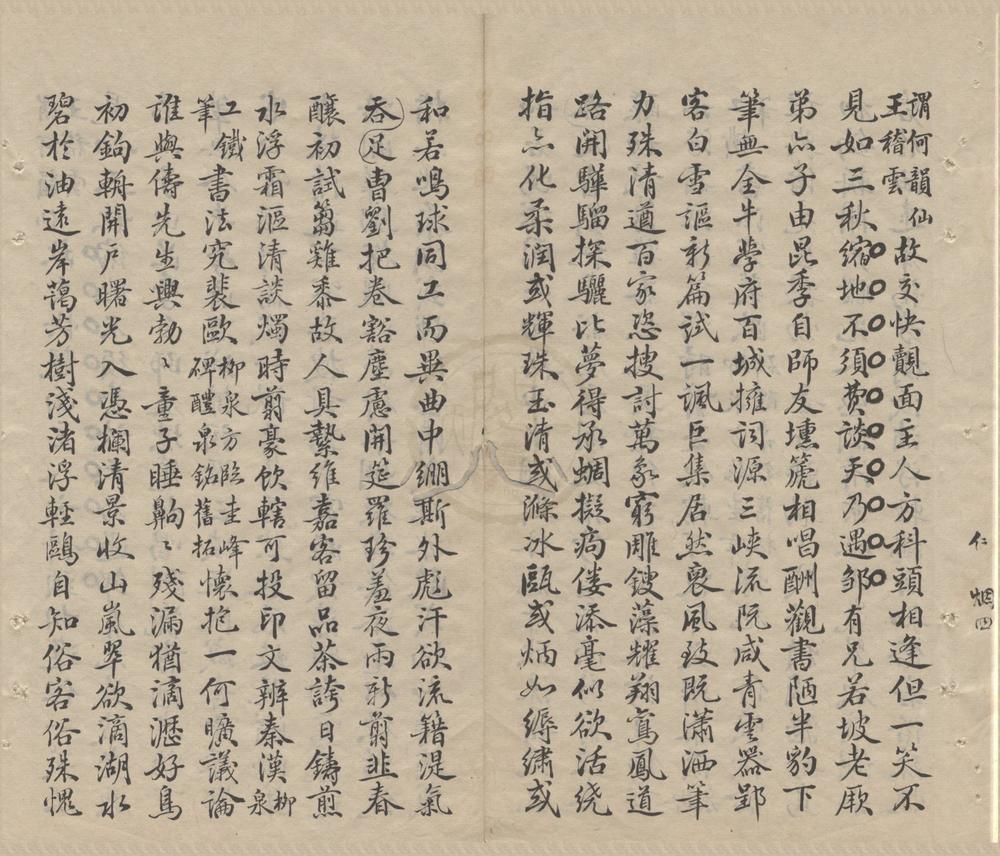 謂何韻仙
王稽雲
故交快覿面主人方科頭相逢但一笑不
見如三秋縮地不須費談天乃遇邹有兄若坡老厥
弟亦子由昆季自師友壎箎相唱酬觀書陋半豹下
筆無全牛學府百城擁詞源三峽流阮咸青雲器郢
客白雪謳新篇試一諷巨集居然裒風致既瀟洒筆
力殊清遒百家恣搜討萬象窮雕鎪藻耀翔鸞鳳道
路開驊騮探驪比夢得承蜩擬痀僂添毫似欲活繞
指亦化柔潤或輝珠玉清或滌冰甌或炳如縟繡或
和若鳴球同工而異曲中綳斯外彪汗欲流籍湜氣
吞足曹劉把卷豁塵慮開筵羅珍羞夜雨新翦韭春
釀初試蒭雞黍故人具縶維嘉客留品茶誇日鑄煎
水浮霜漚清談燭時翦豪飲轄可投印文辨秦漢柳泉
工鐵筆
書法究裴歐柳泉方臨圭峰碑醴泉銘舊拓懷抱一何曠議論
誰與儔先生興勃〻童子睡齁〻殘漏猶滴瀝好鳥
初鉤輈開戶曙光入憑欄清景收山嵐翠欲滴湖水
碧於油遠岸藹芳樹淺渚浮輕鷗自知俗客俗殊愧
仁 烟四